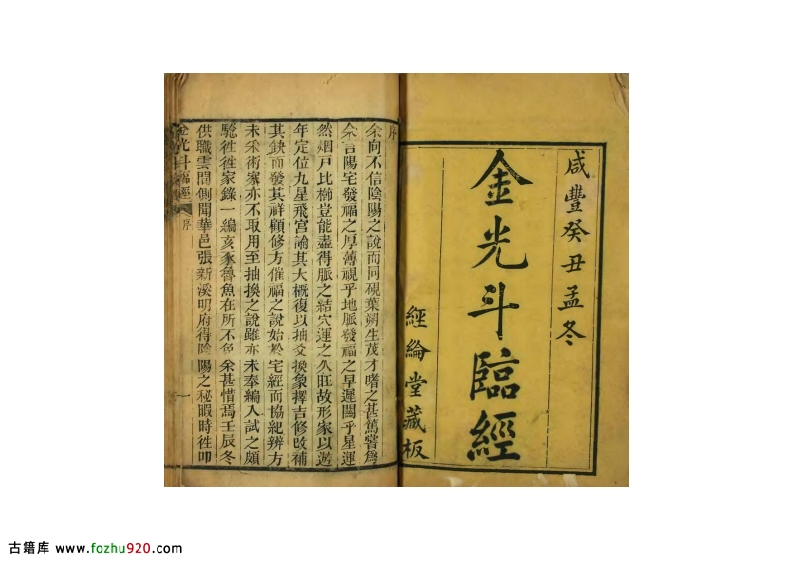 咸豐癸丑孟冬
金光斗臨經
經綸堂藏板
序
余向不信陰陽之說而同硯葉朔生茂才嗜之甚篤嘗爲
余言陽宅發福之厚薄視乎地脈發福之早遲關乎星運
然烟戸比櫛豈能盡得脈之結穴運之久旺故形家以遊
年定位九星飛宮論其大槪復以抽爻換象擇吉修改補
其缺而發其祥顧修方催福之說始於宅經而協紀辨方
未采術家亦不取用至抽換之說雖亦未奉編入試之頗
驗徃徃家錄一編亥豕魯魚在所不免余甚惜焉壬辰冬
供職雲間側聞華邑張新溪明府得陰陽之秘暇時徃叩
金光斗臨經
序
一
古籍库 www.fozhu920.com